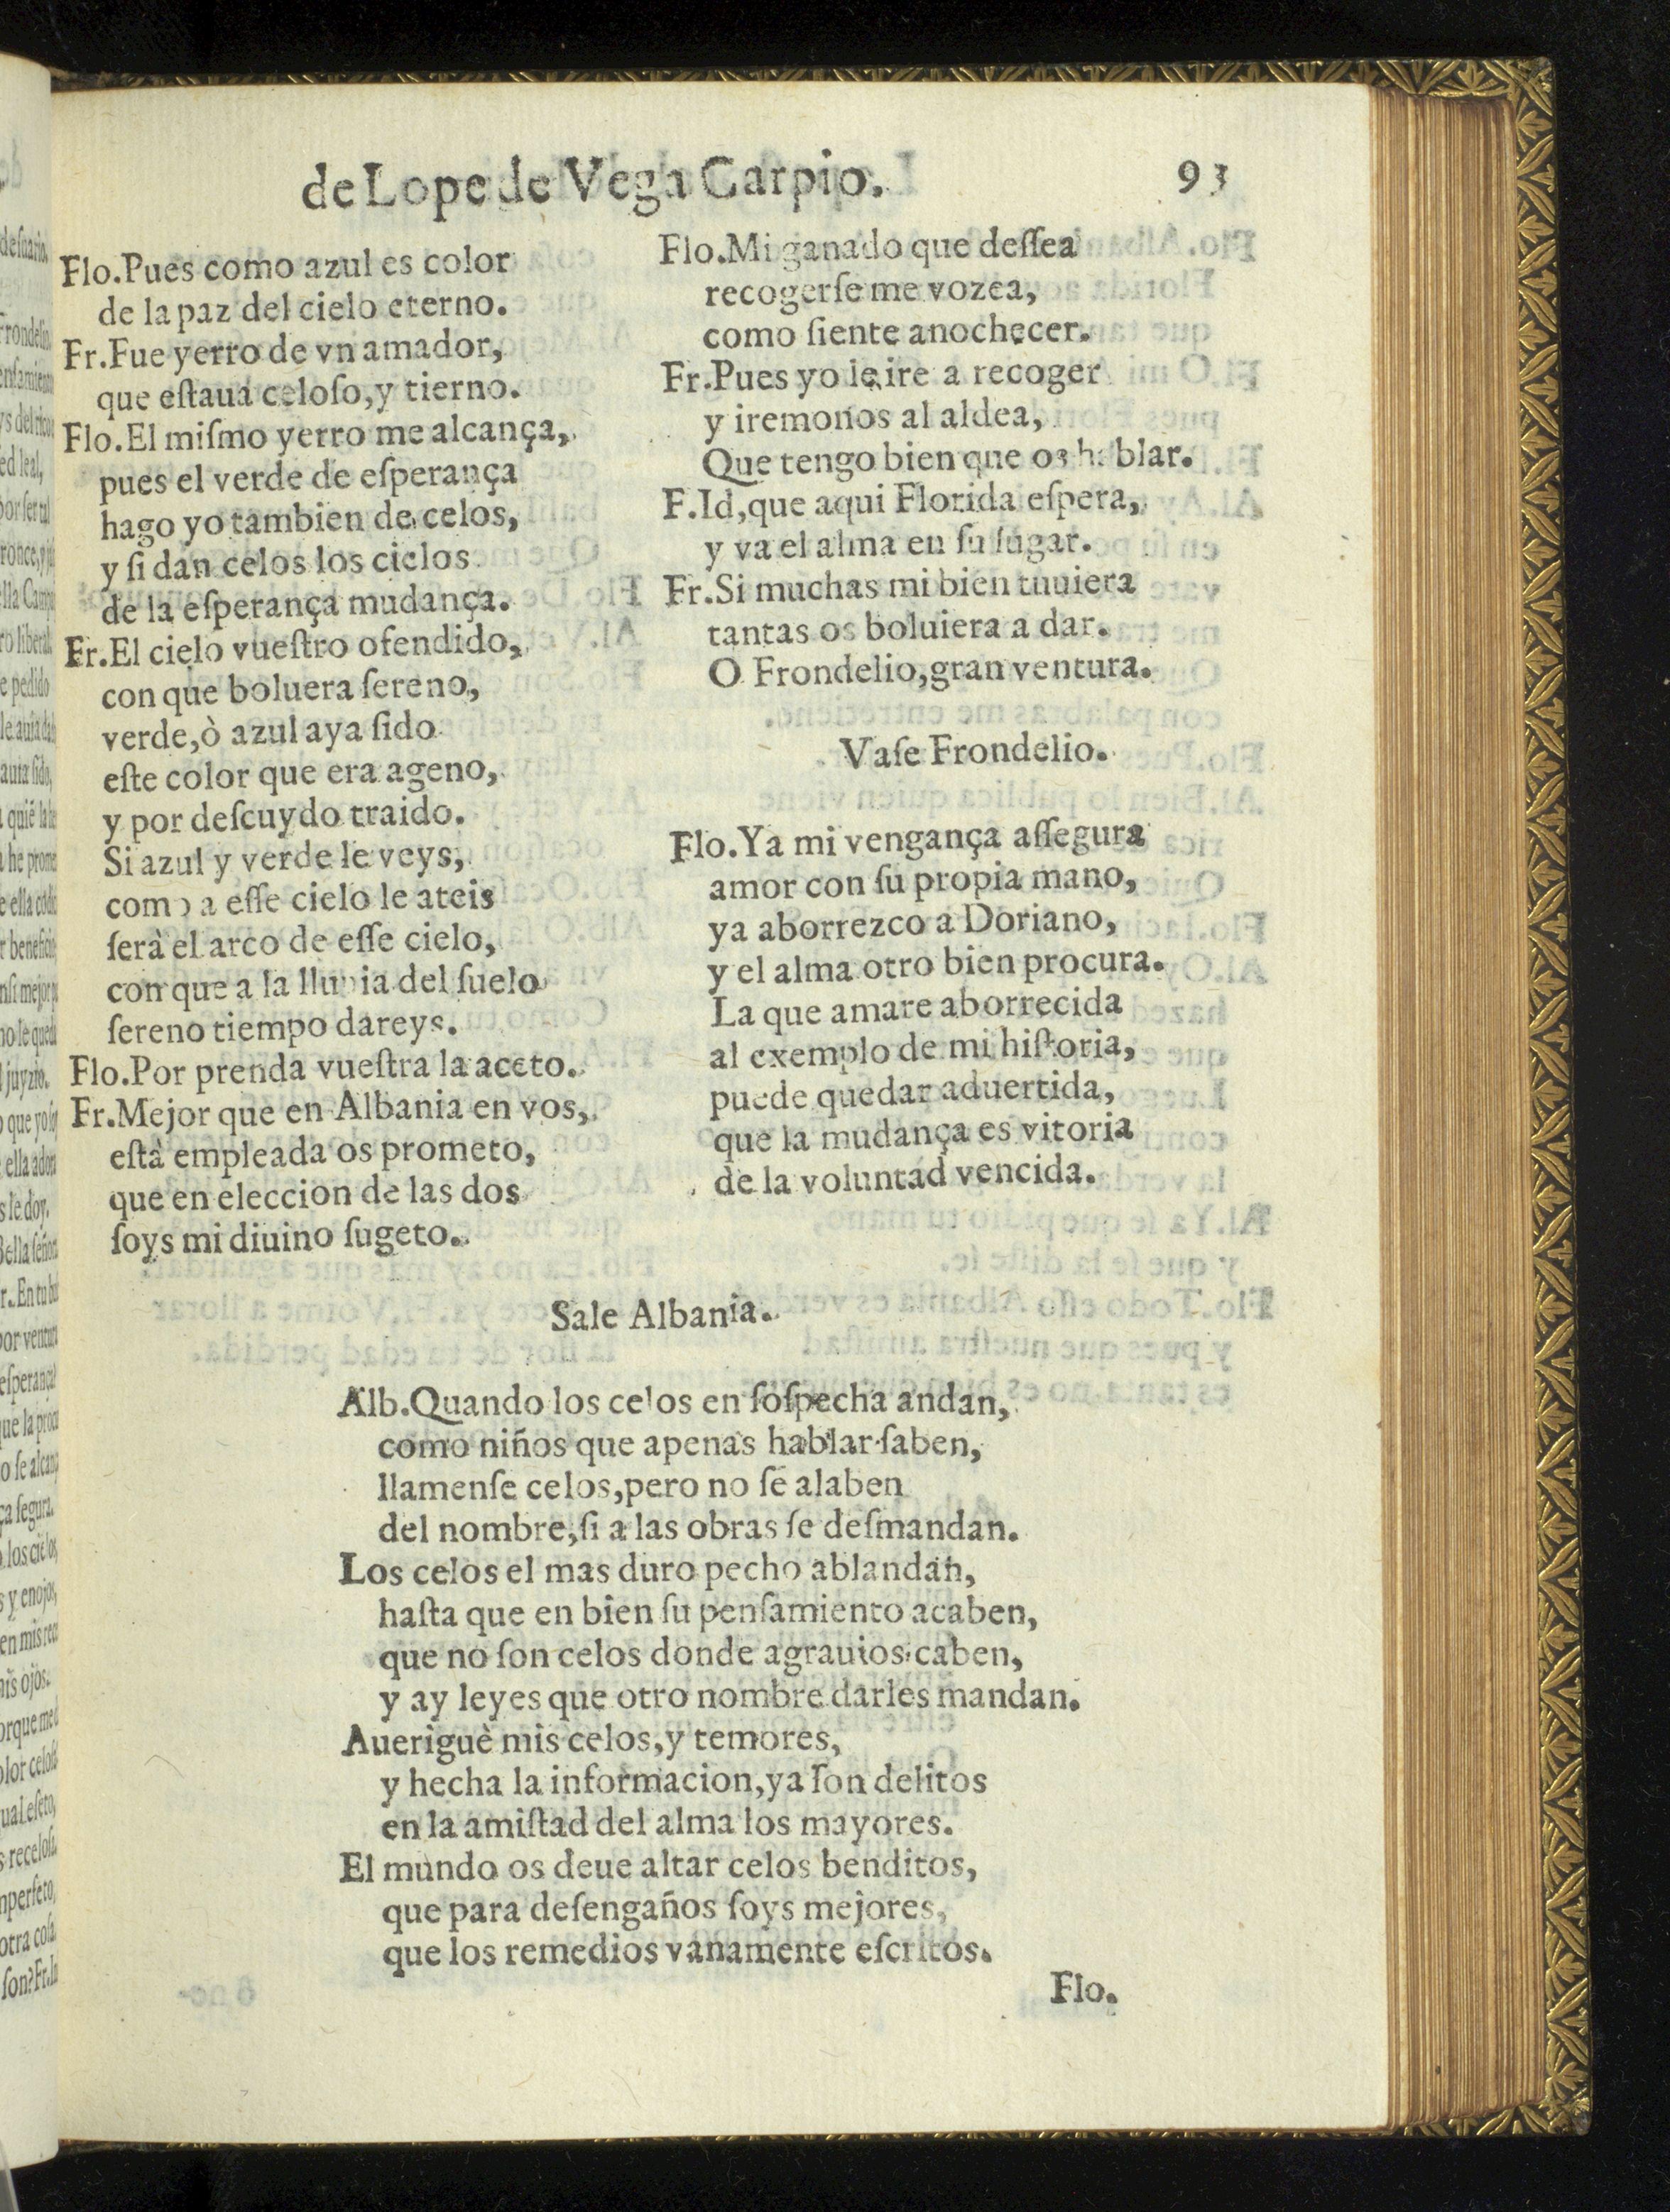 de Lope de Vega Carpio. 93
Flo.Pues como azul es color
de la paz del cielo eterno.
Fr.Fue yerro de vn amador,
que eſtaua celoſo,y tierno.
Flo.El miſmo yerro me alcança,
pues el verde de eſperança
hago yo tambien de celos,
y ſi dan celos los cielos
de la eſperança mudança.
Fr.El cielo vueſtro ofendido,
con que boluera ſereno,
verde,ò azul aya ſido
eſte color que era ageno,
y por deſcuydo traido.
Si azul y verde le veys,
como a eſſe cielo le ateis
ſerà el arco de eſſe cielo,
con que a la lluuia del ſuelo
ſereno tiempo dareys.
Flo.Por prenda vueſtra la aceto.
Fr.Mejor que en Albania en vos,
eſtà empleada os prometo,
que en eleccion de las dos
ſoys mi diuino ſugeto.
Flo.Mi ganado que deſſea
recogerſe me vozea,
como ſiente anochecer.
Fr.Pues yo le ire a recoger
y iremonos al aldea,
Que tengo bien que os hablar.
F.Id,que aqui Florida eſpera,
y va el alma en ſu lugar.
Fr.Si muchas mi bien tuuiera
tantas os boluiera a dar.
O Frondelio,gran ventura.
Vaſe Frondelio.
Flo.Ya mi vengança aſſegura
amor con ſu propia mano,
ya aborrezco a Doriano,
y el alma otro bien procura.
La que amare aborrecida
al exemplo de mi hiſtoria,
puede quedar aduertida,
que la mudança es vitoria
de la voluntad vencida.
Sale Albania.
Alb.Quando los celos en ſoſpecha andan,
como niños que apenas hablar ſaben,
llamenſe celos,pero no ſe alaben
del nombre,ſi a las obras ſe deſmandan.
Los celos el mas duro pecho ablandan,
haſta que en bien ſu penſamiento acaben,
que no ſon celos donde agrauios caben,
y ay leyes que otro nombre darles mandan.
Aueriguè mis celos,y temores,
y hecha la informacion,ya ſon delitos
en la amiſtad del alma los mayores.
El mundo os deue altar celos benditos,
que para deſengaños ſoys mejores,
que los remedios vanamente eſcritos.
Flo.